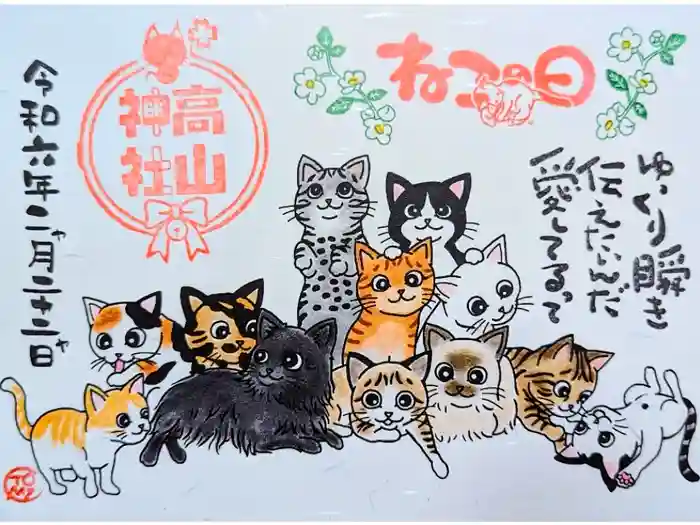 ねこの日
ゆっくり瞬き
伝えたいんだ
愛してるって
高山
神社
令和六年二月二十二日